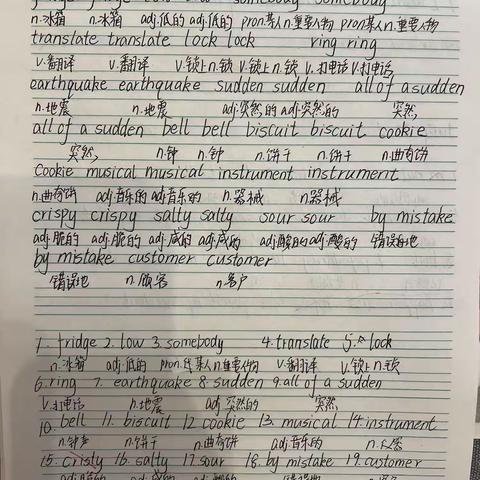 fridge fridge low low somebody somebody
n.冰箱 n.冰箱 adj.低的 adj.低的 pron.某人 n.重要人物 pron某人 n.重要人物
translate translate lock lock ring ring
v.翻译 v.翻译 v.锁上 n.锁 v.锁上 n.锁 v.打电话 v.打电话
earthquake earthquake sudden sudden all of a sudden
n.地震 n.地震 adj.突然的 adj.突然的 突然
all of a sudden bell bell biscuit biscuit cookie
突然 n.钟 n.钟 n.饼干 n.饼干 n.曲奇饼
cookie musical musical instrument instrument
n.曲奇饼 adj.音乐的 adj音乐的 n.器械 n器械
crispy crispy salty salty sour sour by mistake
adj.脆的 adj.脆的 adj.咸的 adj.咸的 adj.酸的 adj.酸的 错误地
by mistake customer customer
错误地 n.顾客 n.客户
1. fridge 2. low 3. somebody 4. translate 5. lock
n.冰箱 adj.低的 pron.某人 n.重要人物 v.翻译 v.锁上 n.锁
6. ring 7. earthquake 8. sudden 9. all of a sudden
v.打电话 n.地震 adj.突然的 突然
10. bell 11. biscuit 12 cookie 13. musical 14. instrument
n.饼干 n.曲奇饼 adj音乐的
15. cristy 16. salty 17. sour 18. by mistake 19. customer